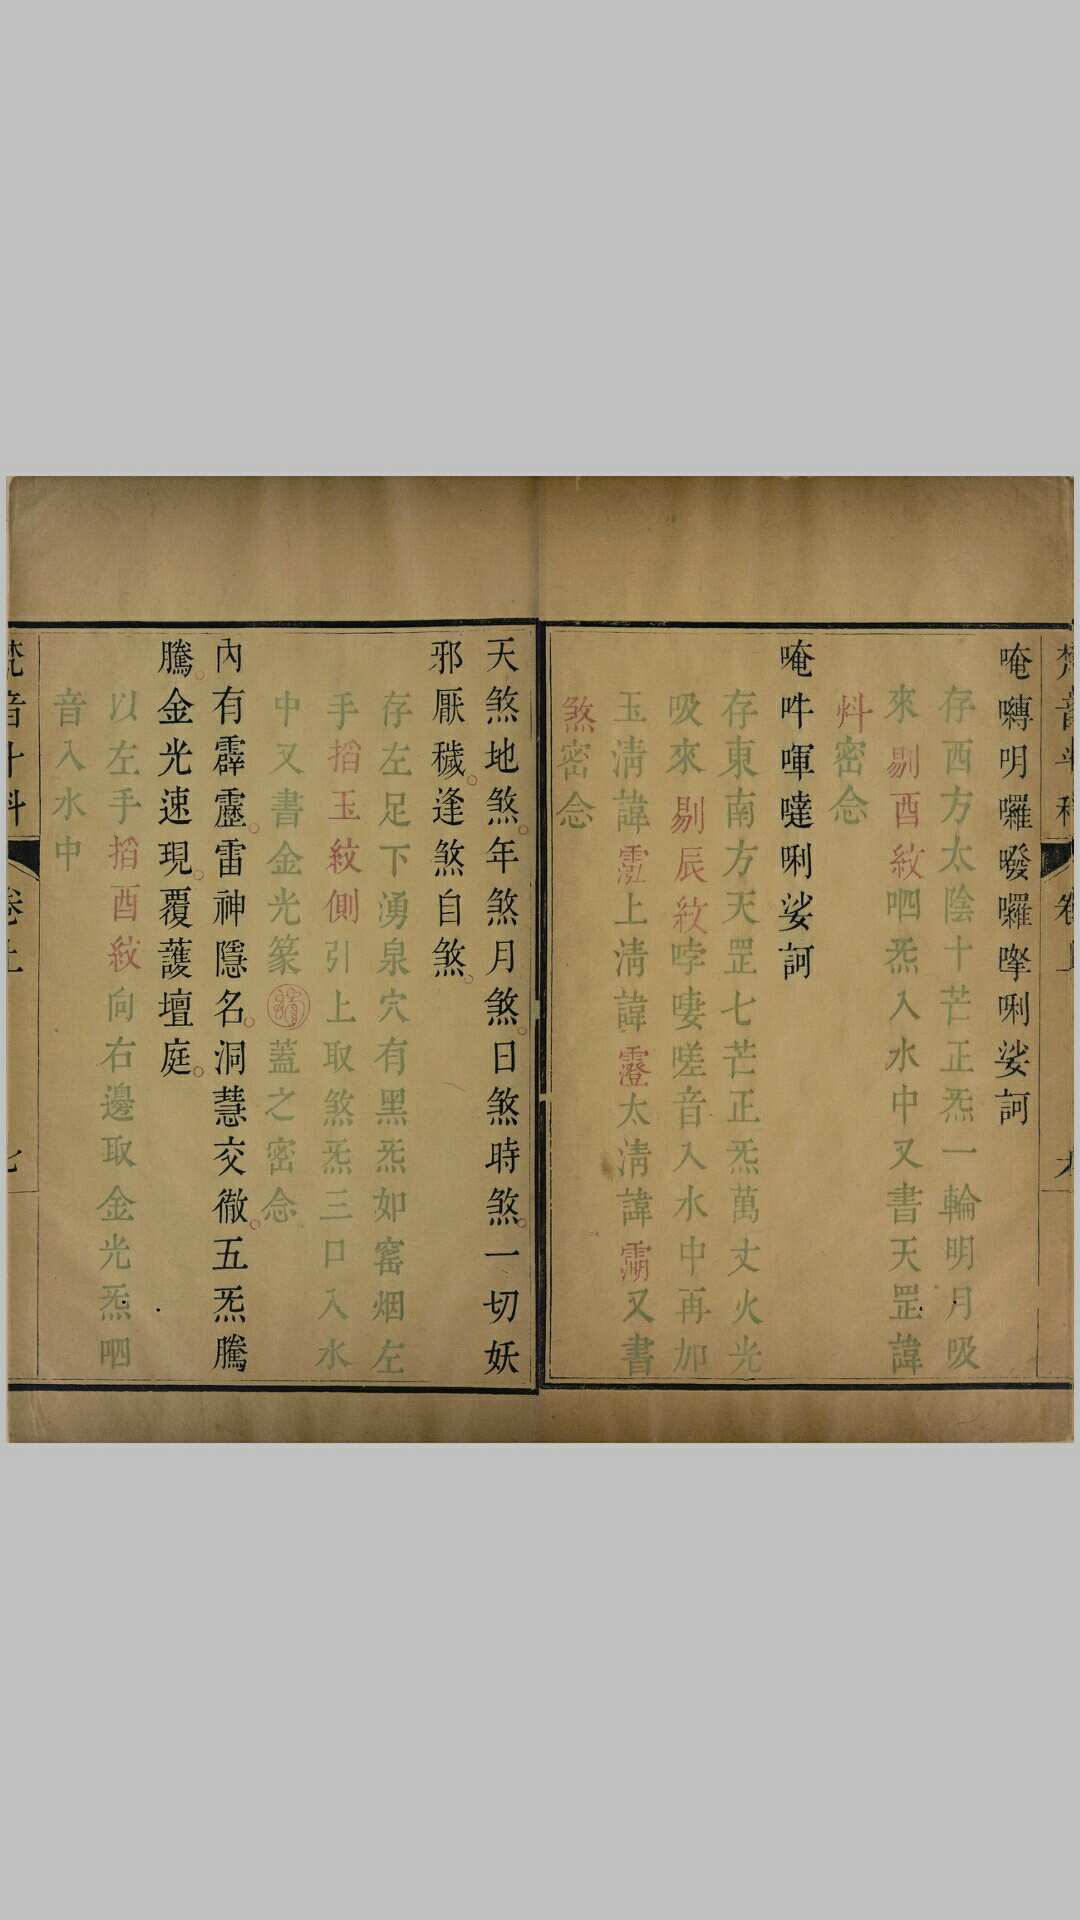 唵囀明囉㗶囉㘄唎娑訶
存西方太陰十芒正炁一輪明月吸
來剔酉紋呬炁入水中又書天罡諱
炓密念
唵吽㖇噠唎娑訶
存東南方天罡七芒正炁萬丈火光
吸來剔辰紋哱嘍嗟音入水中再加
玉清諱上清諱太清諱又書
煞密念
天煞地煞。年煞月煞。日煞時煞。一切妖
邪厭穢。逢煞自煞。
存左足下湧泉穴有黑炁如窰烟左
手搯玉紋側引上取煞炁三口入水
中又書金光篆蓋之密念
內有霹靂。雷神隱名。洞慧交徹。五炁騰
騰。金光速現。覆護壇庭。
以左手搯酉紋向右邊取金光炁呬
音入水中
梵音斗科 卷上 七